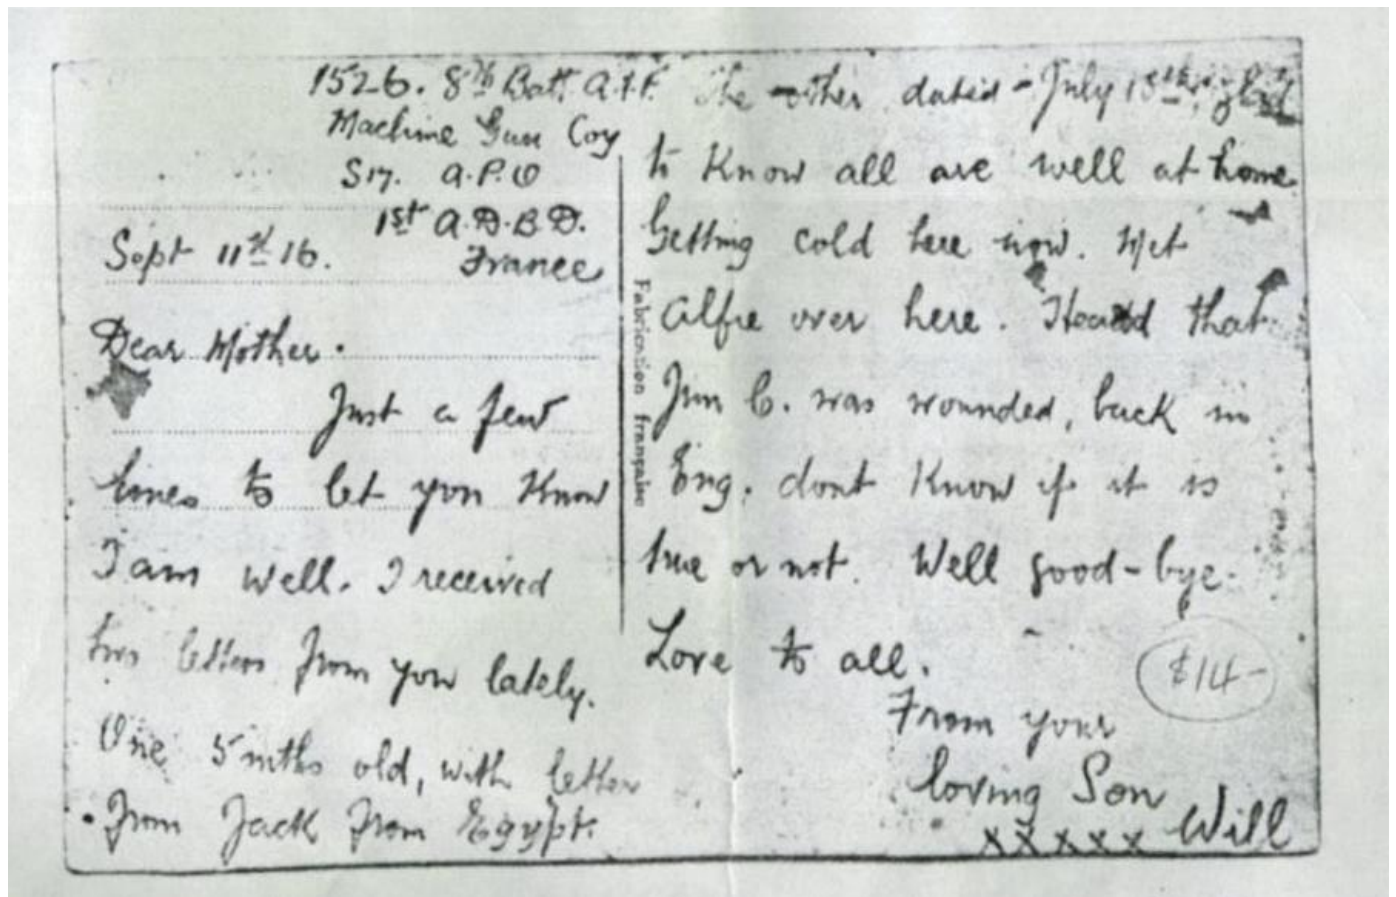 1526. 8th Batt. A.I.F.
Machine Gun Coy
S17. A.P.O
1st A.D.B.D.
Sept 11th 16. France
Dear Mother.
Just a few
lines to let you Know
I am well. I received
two letters from you lately.
One 5 mths old, with letter
from Jack from Egypt.
Fabrication française
The other dated July 18th, glad
to Know all are well at home.
Getting cold here now. Met
Alfie over here. Heard that
Jim C. was wounded, back in
Eng. dont Know if it is
true or not. Well good-bye.
Love to all.
$14-
From your
loving Son
xxxxx Will